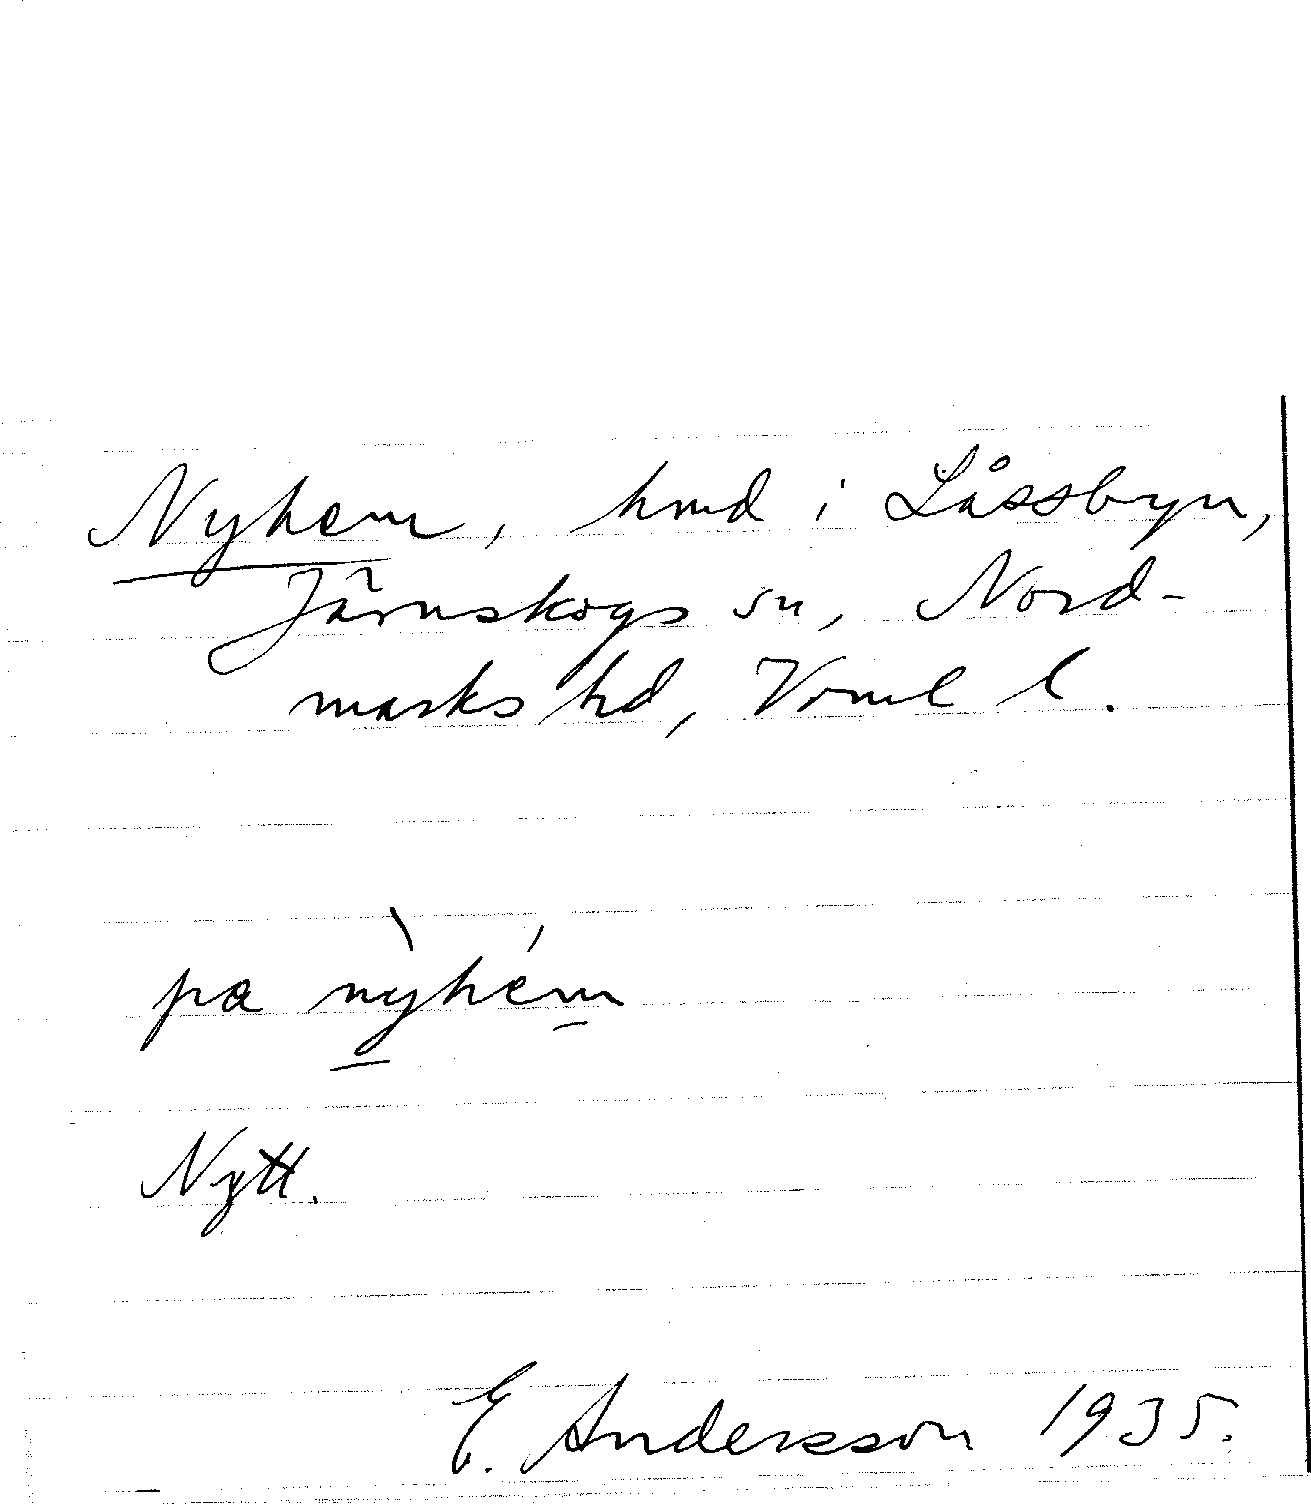 Nyhem, hmd i Låssbyn,
Järnskogs sn, Nord-
marks hd, Vrml l.
pa nỳhém
Nytt.
E. Andersson 1935.